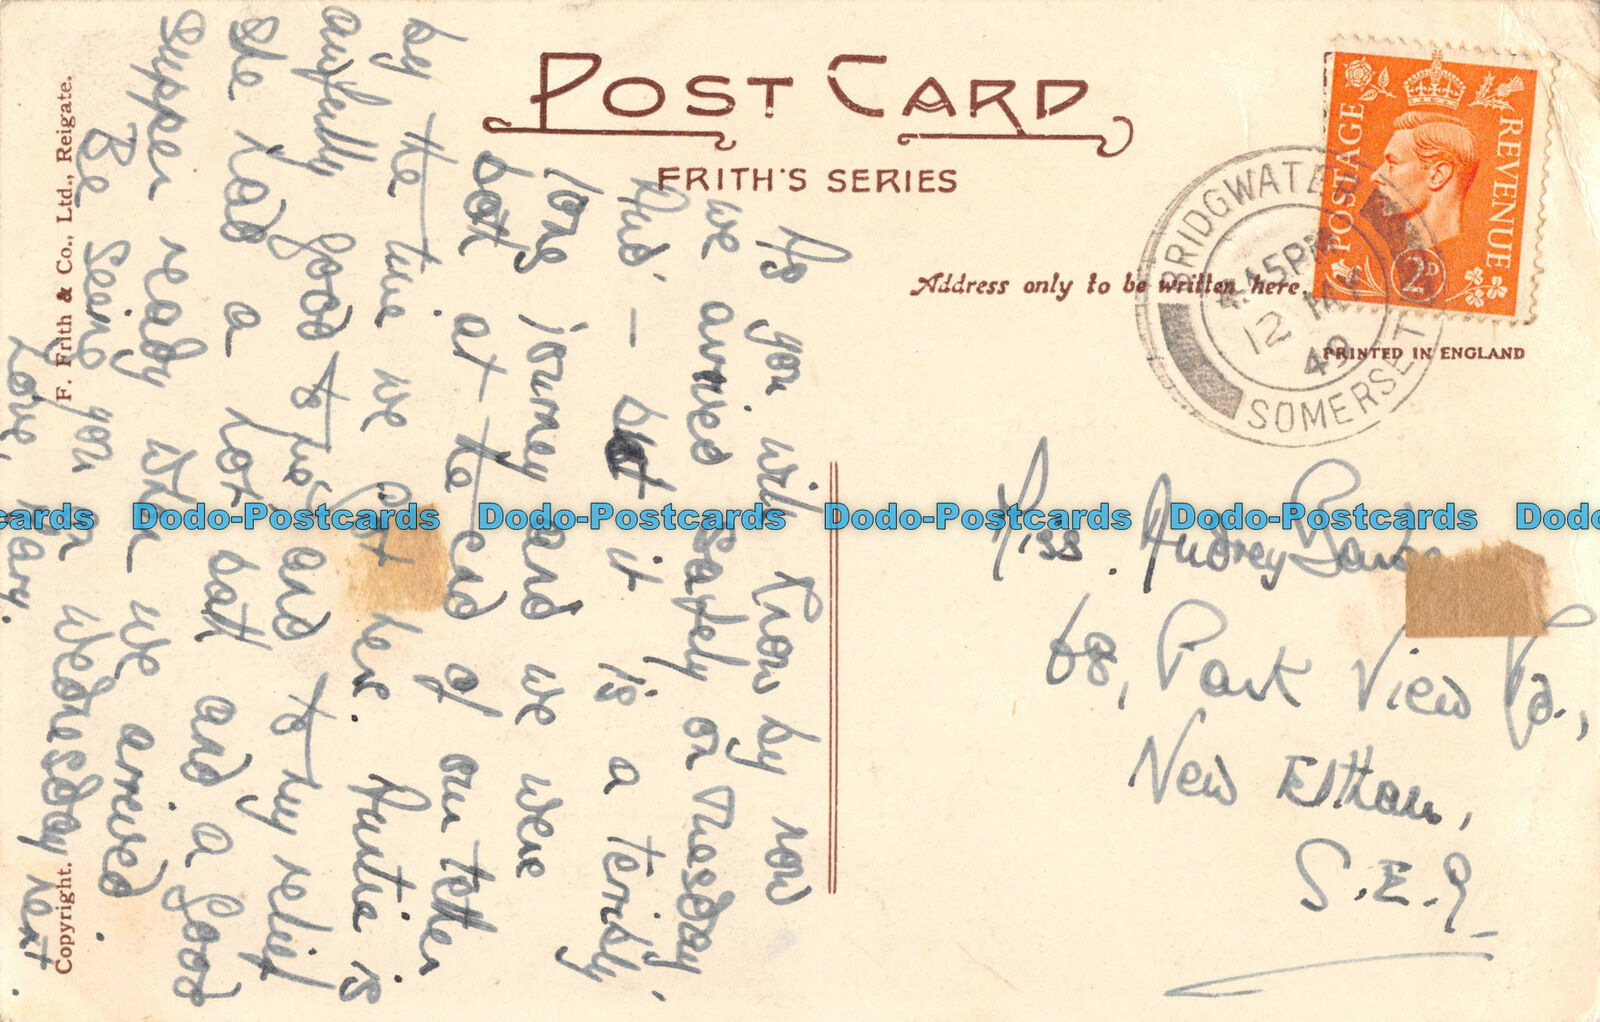 POST CARD
FRITH'S SERIES
Address only to be written here.
PRINTED IN ENGLAND
POSTAGE
REVENUE
2D
BRIDGWATER
SOMERSET
4.45PM
12 MY
49
F. Frith & Co., Ltd., Reigate.
Copyright.
As you will know by now
we arrived safely on Tuesday
but it is a terribly
long journey and we were
both at the end of our tether
by the time we got here. Auntie is
awfully good to me and to my relief
she had a hot bath and a good
supper ready when we arrived.
Be seeing you on Wednesday next.
Love, Mary.
Miss. Audrey
68, Park View Rd.,
New Eltham,
S.E.9
Dodo-Postcards Dodo-Postcards Dodo-Postcards Dodo-Postcards